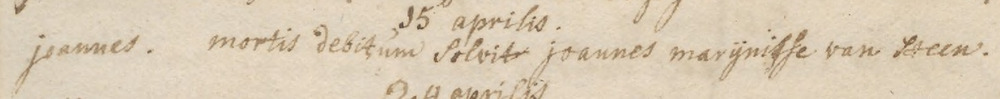 15 aprilis.
joannes. mortis debitum solvit joannes marijnisse van steen.
24 aprilis